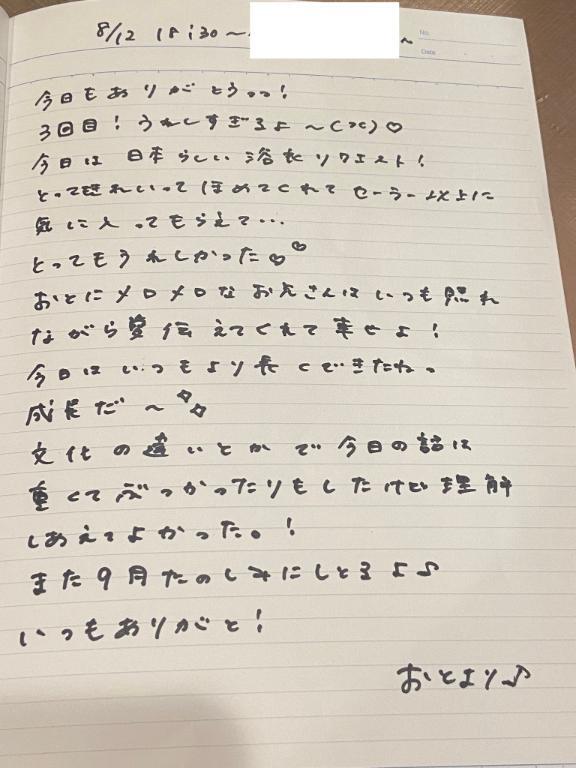 8/12 18:30〜
ん
No.
Date
今日もありがとうっっ!
3回目!うれしすぎるよ〜(>< )♡
今日は 日本らしい 浴衣リクエスト!
とってもきれいってほめてくれて セーラー以上に
気に入ってもらえて…
とってもうれしかった♡♡
おとにメロメロな お兄さんはいつも照れ
ながら愛伝えてくれて幸せよ!
今日はいつもより長くできたね。
成長だ〜
文化の違いとかで今日の話は
重くてぶつかったりもしたけど理解
しあえてよかった。!
また9月たのしみにしとるよ♪
いつもありがと!
おとより♪